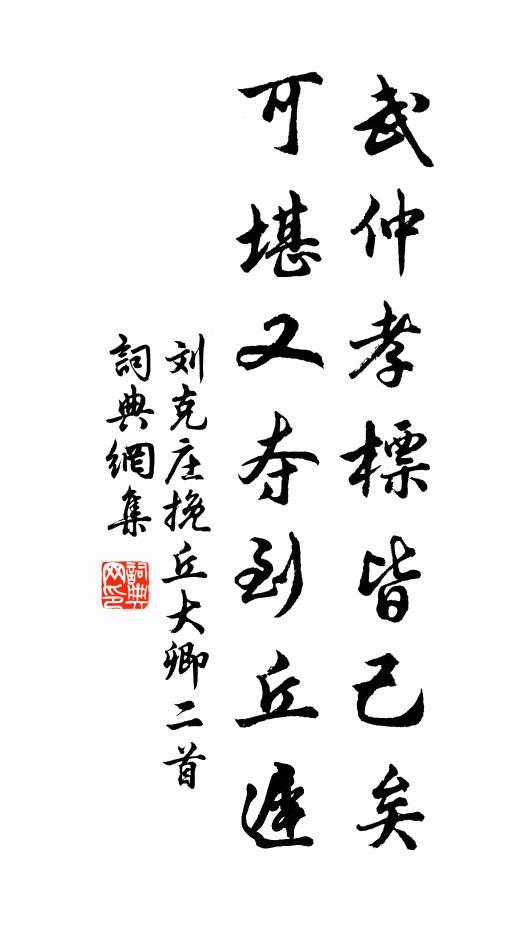 武仲孝標皆已矣
可堪又夺到丘遲
刘克庄挽丘大卿二首
詞典網集
詞典网印